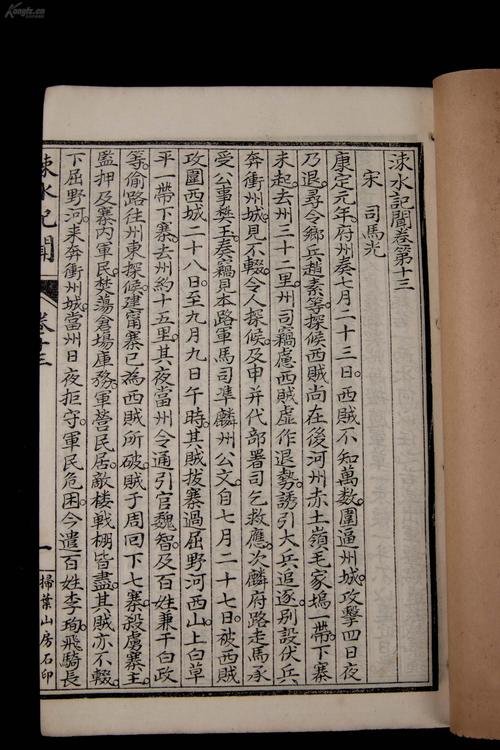 Kongfz.cn
涑水記聞卷第十三
宋 司馬光
康定元年府州奏七月二十三日西賊不知萬數圍逼州城攻擊四日夜
乃退尋令鄉兵趙素等探候西賊尚在後河州赤土嶺毛家塢一帶下寨
未起去州三十二里州司竊慮西賊虛作退勢誘引大兵追逐別設伏兵
奔衝州城見不輟令人探候及申并代部署司乞救應次麟府路走馬承
受公事樊玉奏竊見本路軍馬司準麟州公文自七月二十七日被西賊
攻圍西城二十八日至九月九日午時其賊拔寨過屈野河西山上白草
平一帶下寨去州約十五里其夜當州令通引官魏智及百姓兼干白政
等偷路往州東探候建甯寨已為西賊所破賊于周回下七寨殺虜寨主
監押及寨內軍民焚蕩倉場庫務軍營民居敵樓戰棚皆盡其賊亦不輟
下屈野河來奔衝州城當州日夜拒守軍民危困今遣百姓李珣飛騎長
涑水記聞 卷十三 一 掃葉山房石印